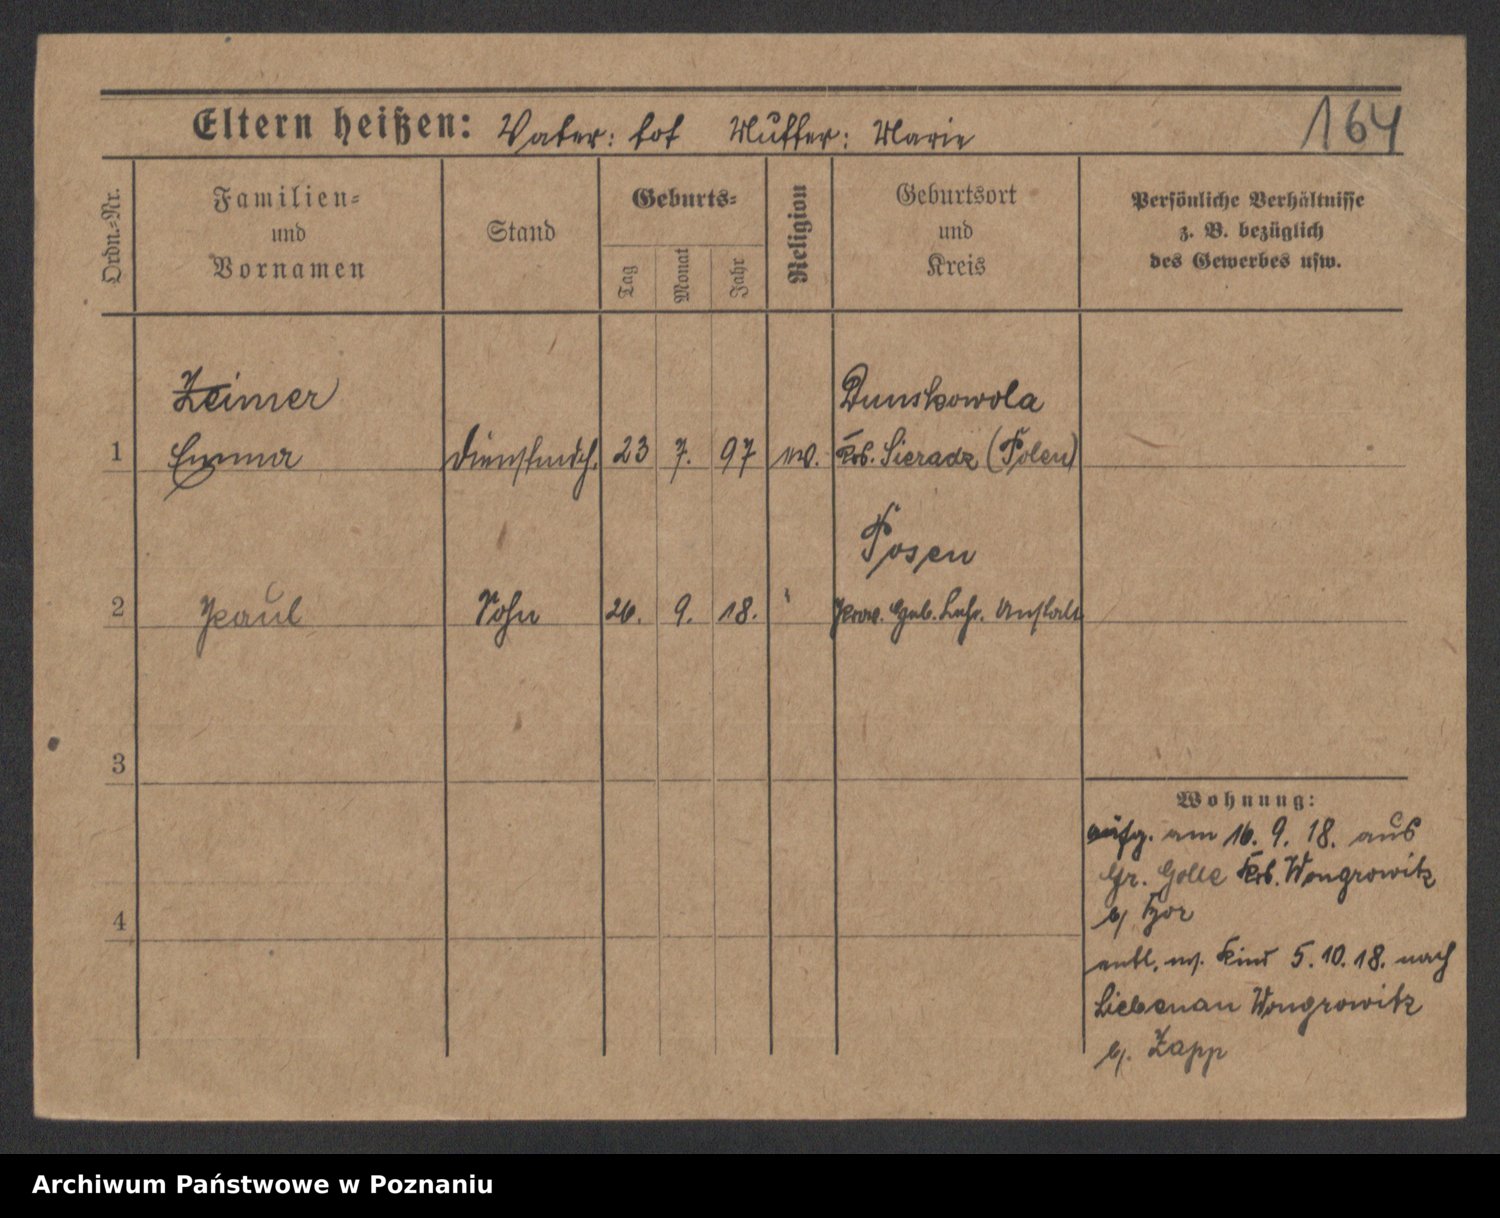 Eltern heißen: Vater: tot Mutter: Marie
164
Ordn.-Nr.
Familien-
und
Vornamen
Stand
Geburts-
Tag
Monat
Jahr
Religion
Geburtsort
und
Kreis
Persönliche Verhältnisse
z. B. bezüglich
des Gewerbes usw.
Zeimer
Dunskowola
1 Emma Dienstmdch. 23 7. 97 ev. Krs. Sieradz (Polen)
Posen
2 Paul Sohn 26. 9. 18. " Prov. Geb. Lehr. Anstalt
3
Wohnung:
aufg. am 16. 9. 18. aus
Gr. Golle Krs. Wongrowitz
b/
4
entl. m. Kind 5. 10. 18. nach
Liebenau Wongrowitz
b/. Zapp
Archiwum Państwowe w Poznaniu